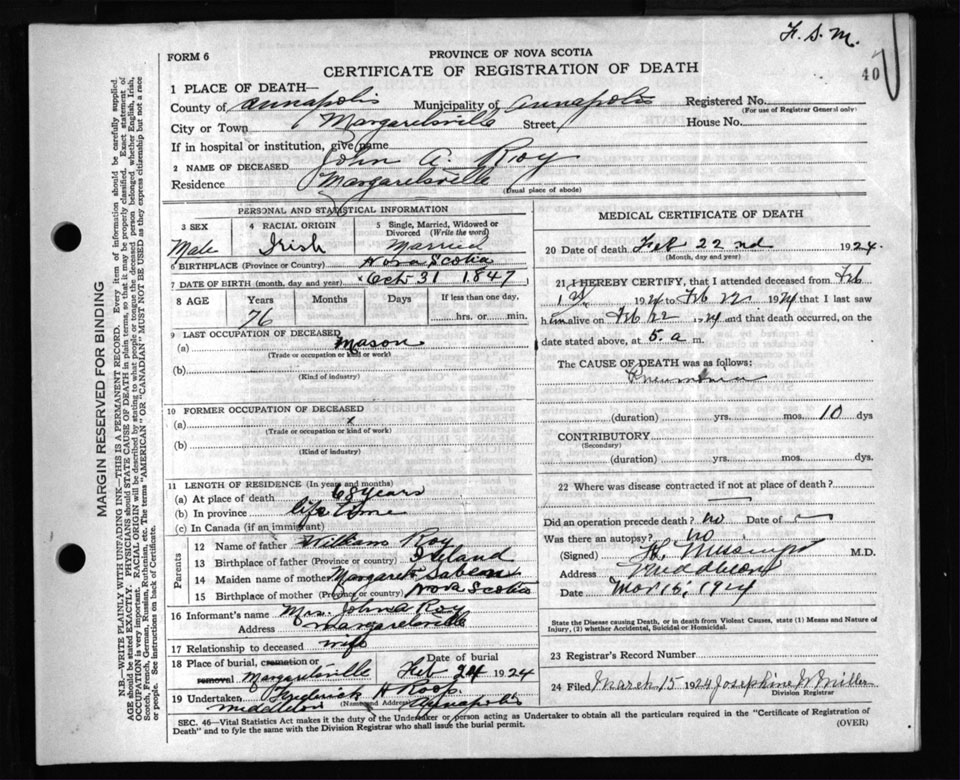 F. S. M.
FORM 6
PROVINCE OF NOVA SCOTIA
CERTIFICATE OF REGISTRATION OF DEATH
40
1 PLACE OF DEATH—
County of Annapolis Municipality of Annapolis Registered No.
(For use of Registrar General only)
City or Town Margaretsville Street House No.
If in hospital or institution, give name
2 NAME OF DECEASED John A. Roy
Residence Margaretsville
(Usual place of abode)
PERSONAL AND STATISTICAL INFORMATION
3 SEX
Male
4 RACIAL ORIGIN
Irish
5 Single, Married, Widowed or Divorced (Write the word)
Married
6 BIRTHPLACE (Province or Country) Nova Scotia
7 DATE OF BIRTH (month, day and year) Oct 31 1847
8 AGE Years Months Days If less than one day,
76 hrs. or min.
9 LAST OCCUPATION OF DECEASED
(a) Mason
(Trade or occupation or kind of work)
(b)
(Kind of industry)
10 FORMER OCCUPATION OF DECEASED
(a) x
(Trade or occupation or kind of work)
(b)
(Kind of industry)
11 LENGTH OF RESIDENCE (In years and months)
(a) At place of death 68 years
(b) In province life time
(c) In Canada (if an immigrant)
Parents
12 Name of father William Roy
13 Birthplace of father (Province or Country) Ireland
14 Maiden name of mother Margaret
15 Birthplace of mother (Province or Country) Nova Scotia
16 Informant's name Mrs. John A Roy
Address Margaretsville
17 Relationship to deceased wife
18 Place of burial, cremation or Date of burial
removal Margaretsville Feb 24 1924
19 Undertaker Frederick H Roop
Middleton (Name and Address) Annapolis
MEDICAL CERTIFICATE OF DEATH
20 Date of death Feb 22nd 1924
(Month, day and year)
21, I HEREBY CERTIFY, that I attended deceased from Feb
1924 to Feb 1924 that I last saw
him alive on Feb 22 1924 and that death occurred, on
date stated above, at 5. a m.
The CAUSE OF DEATH was as follows:
Pneumonia
(duration) yrs. mos. 10 dys
CONTRIBUTORY
(Secondary)
(duration) yrs. mos. dys.
22 Where was disease contracted if not at place of death?
Did an operation precede death? no Date of
Was there an autopsy? no
(Signed) M.D.
Address Middleton
Date Mar 15, 1924
State the Disease causing Death, or in death from Violent Causes, state (1) Means and Nature of
Injury, (2) whether Accidental, Suicidal or Homicidal.
23 Registrar's Record Number
24 Filed March 15 1924 Josephine W Miller
Division Registrar
SEC. 46—Vital Statistics Act makes it the duty of the Undertaker or person acting as Undertaker to obtain all the particulars required in the "Certificate of Registration of
Death" and to fyle the same with the Division Registrar who shall issue the burial permit. (OVER)
MARGIN RESERVED FOR BINDING
N.B.—WRITE PLAINLY WITH UNFADING INK—THIS IS A PERMANENT RECORD. Every item of information should be carefully supplied.
AGE should be stated EXACTLY. PHYSICIANS should STATE CAUSE OF DEATH in plain terms, so that it may be properly classified. Exact statement of
OCCUPATION is very important. RACIAL ORIGIN will be described by stating to what people or tongue the deceased person belonged whether English, Irish,
Scotch, French, German, Russian, Ruthenian, etc. The terms "AMERICAN" OR "CANADIAN" MUST NOT BE USED as they express citizenship but not a race
or people. See instructions on back of Certificate.